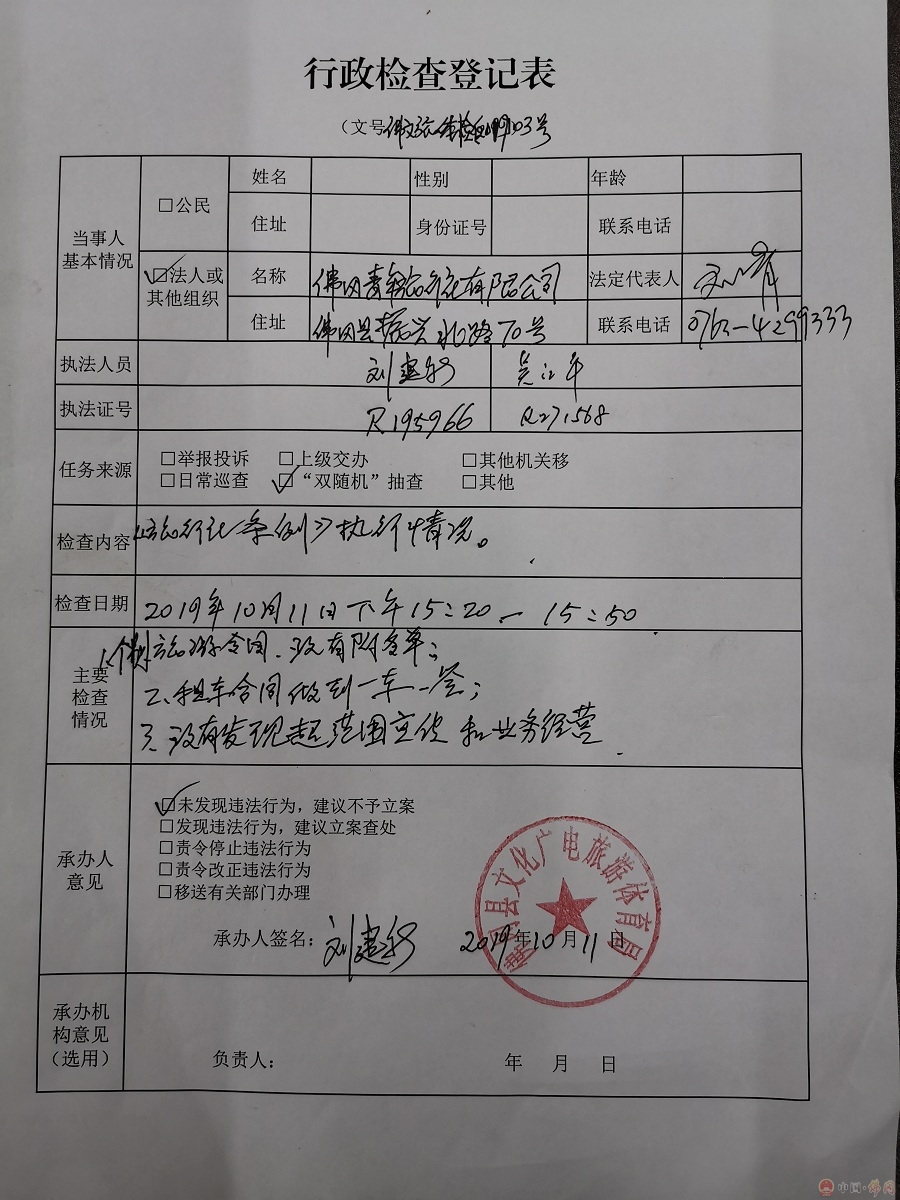 行政检查登记表
（文号
03号
当事人
基本情况
□公民
姓名
性别
年龄
住址
身份证号
联系电话
☑法人或
其他组织
名称
佛冈青年旅行社有限公司
法定代表人
住址
佛冈县振兴北路70号
联系电话
0763-4299333
执法人员
刘建
吴江年
执法证号
R195966
R271568
任务来源
□举报投诉 □上级交办 □其他机关移
□日常巡查 ☑“双随机”抽查 □其他
检查内容
《旅行社条例》执行情况。
检查日期
2019年10月11日下午15:20—15:50
主要
检查
情况
1、个别旅游合同、没有附名单；
2、租车合同做到一车一签；
3、没有发现超范围宣传和业务经营
承办人
意见
☑未发现违法行为，建议不予立案
□发现违法行为，建议立案查处
□责令停止违法行为
□责令改正违法行为
□移送有关部门办理
承办人签名：
刘建
2019年10月11日
佛冈县文化广电旅游体育局
承办机
构意见
（选用）
负责人：
年 月 日
中国·佛冈